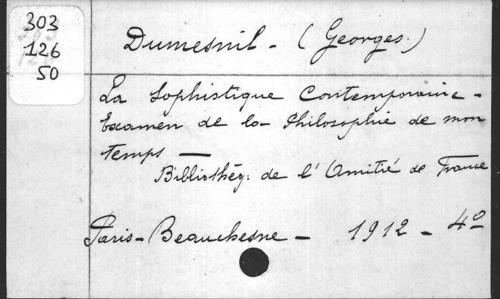 303
126
50
Dumesnil - (Georges.)
La Sophistique Contemporaine -
Examen de la Philosophie de mon
temps —
Bibliothéq: de l'Amitié de France
Paris - Beauchesne - 1912 - 4º